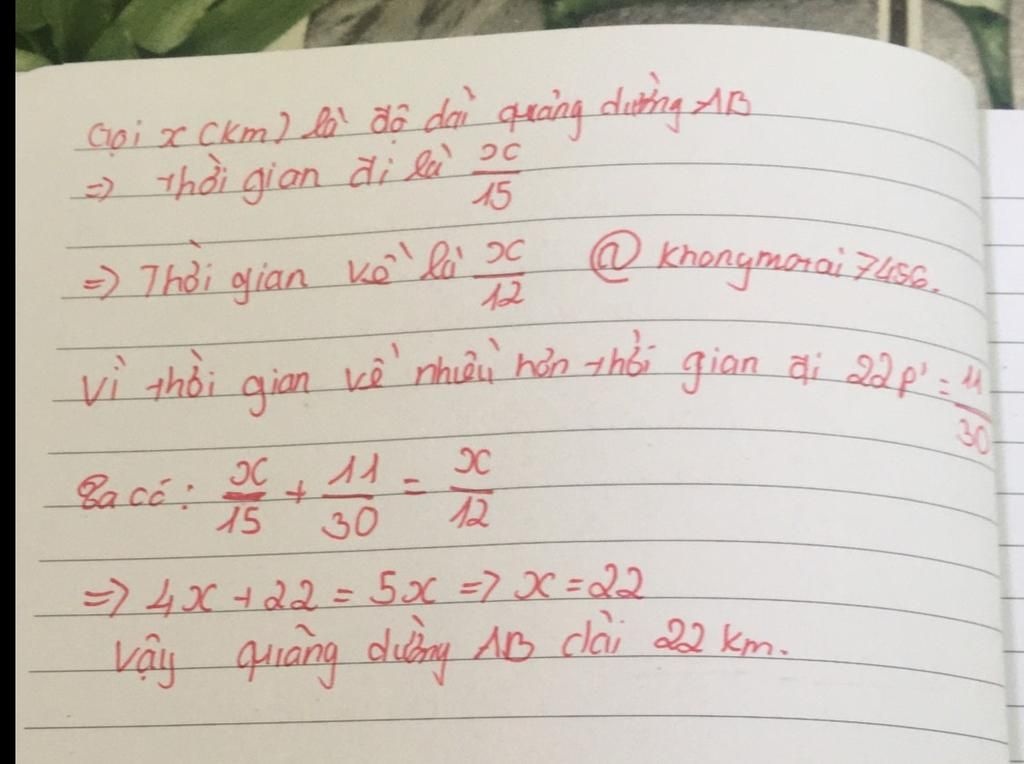 Gọi x (km) là độ dài quảng đường AB
=> thời gian đi là x/15
=> Thời gian về là x/12 @ khongmorai7456.
Vì thời gian về nhiều hơn thời gian đi 22p' = 11/30
Ta có: x/15 + 11/30 = x/12
=> 4x + 22 = 5x => x = 22
Vậy quảng đường AB dài 22 km.